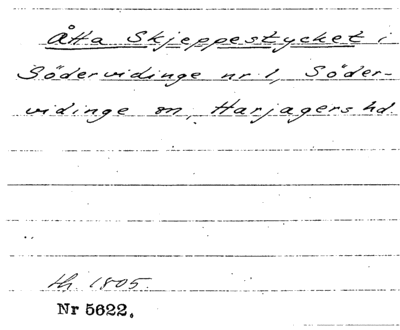 Åtta Skjeppestycket i
Södervidinge nr 1, Söder-
vidinge sn, Harjagers hd.
th. 1805.
Nr 5622.